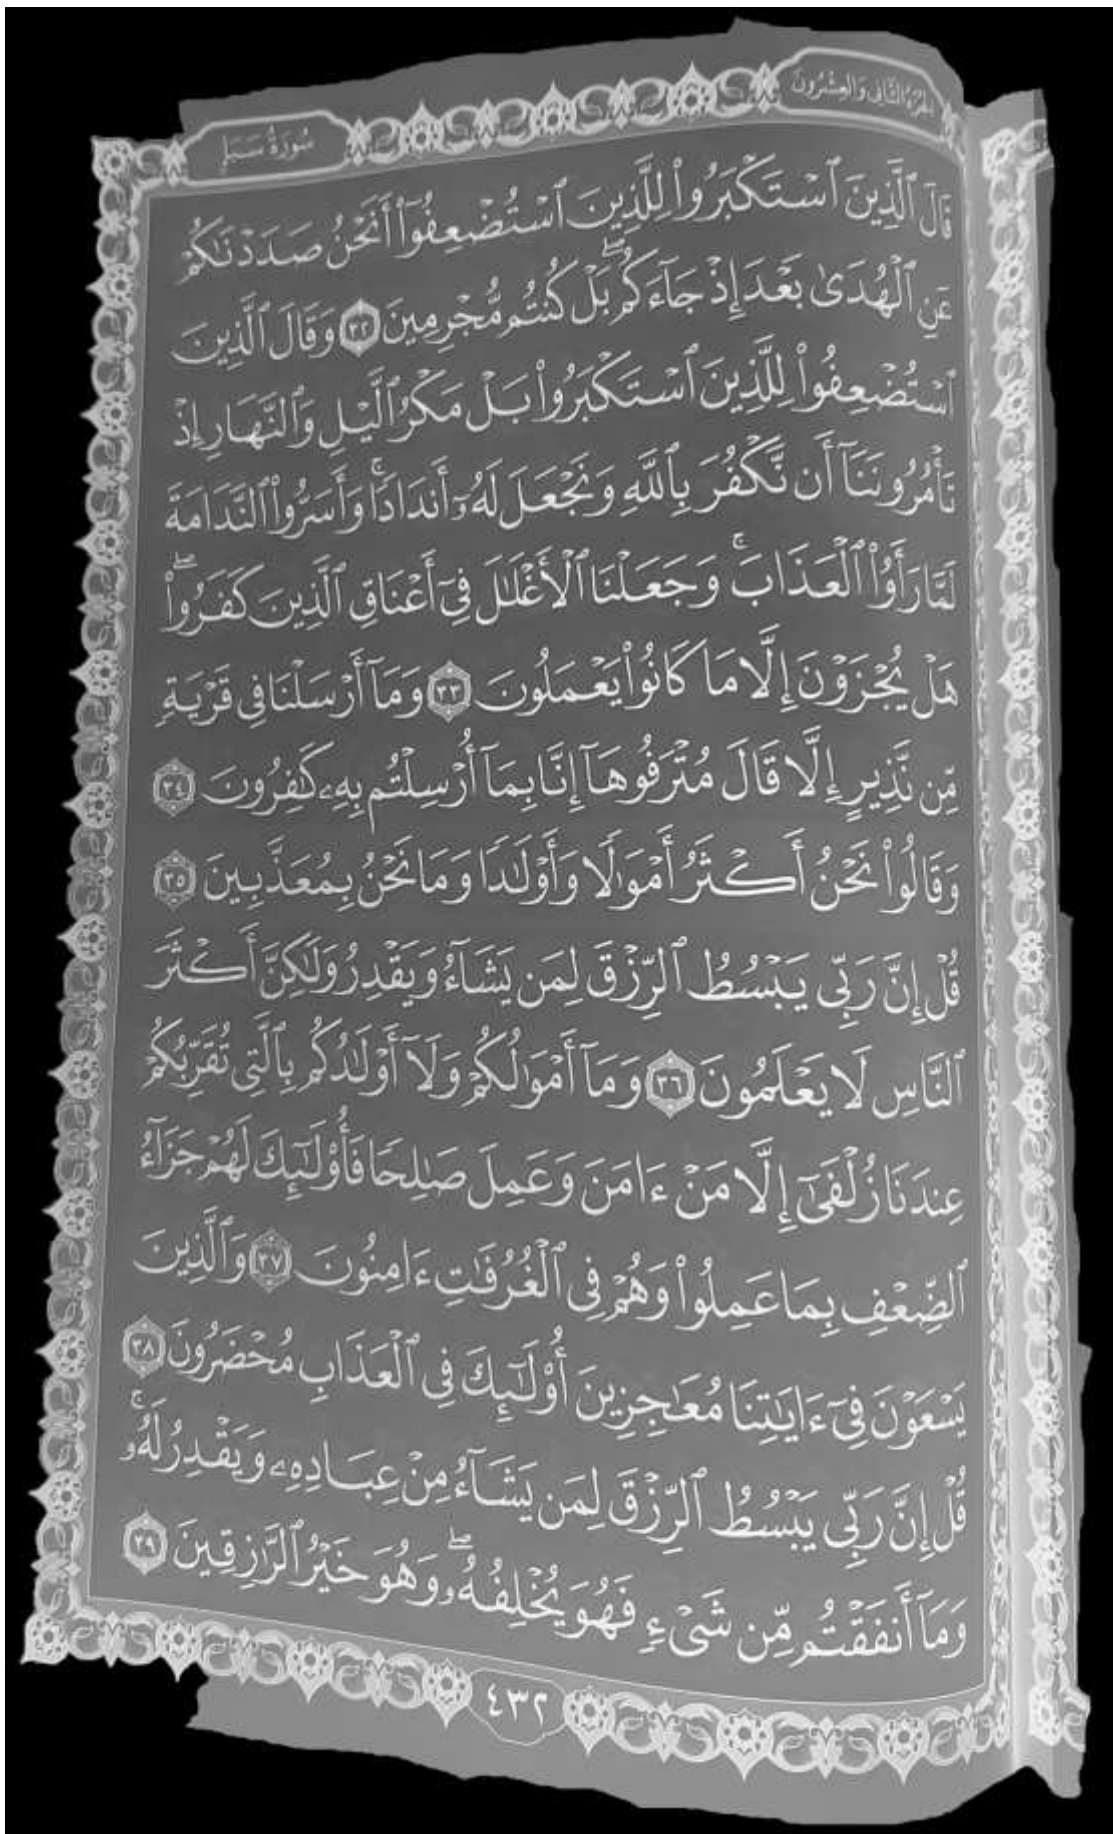 الجزء الثاني والعشرون
سورة سبإ
قَالَ ٱلَّذِينَ ٱسْتَكْبَرُوا۟ لِلَّذِينَ ٱسْتُضْعِفُوٓا۟ أَنَحْنُ صَدَدْنَٰكُمْ
عَنِ ٱلْهُدَىٰ بَعْدَ إِذْ جَآءَكُمۖ بَلْ كُنتُم مُّجْرِمِينَ ٣٢ وَقَالَ ٱلَّذِينَ
ٱسْتُضْعِفُوا۟ لِلَّذِينَ ٱسْتَكْبَرُوا۟ بَلْ مَكْرُ ٱلَّيْلِ وَٱلنَّهَارِ إِذْ
تَأْمُرُونَنَآ أَن نَّكْفُرَ بِٱللَّهِ وَنَجْعَلَ لَهُۥٓ أَندَادًاۚ وَأَسَرُّوا۟ ٱلنَّدَامَةَ
لَمَّا رَأَوُا۟ ٱلْعَذَابَۚ وَجَعَلْنَا ٱلْأَغْلَٰلَ فِىٓ أَعْنَاقِ ٱلَّذِينَ كَفَرُوا۟ۖ
هَلْ يُجْزَوْنَ إِلَّا مَا كَانُوا۟ يَعْمَلُونَ ٣٣ وَمَآ أَرْسَلْنَا فِى قَرْيَةٍ
مِّن نَّذِيرٍ إِلَّا قَالَ مُتْرَفُوهَآ إِنَّا بِمَآ أُرْسِلْتُم بِهِۦ كَٰفِرُونَ ٣٤
وَقَالُوا۟ نَحْنُ أَكْثَرُ أَمْوَٰلًا وَأَوْلَٰدًا وَمَا نَحْنُ بِمُعَذَّبِينَ ٣٥
قُلْ إِنَّ رَبِّى يَبْسُطُ ٱلرِّزْقَ لِمَن يَشَآءُ وَيَقْدِرُ وَلَٰكِنَّ أَكْثَرَ
ٱلنَّاسِ لَا يَعْلَمُونَ ٣٦ وَمَآ أَمْوَٰلُكُمْ وَلَآ أَوْلَٰدُكُم بِٱلَّتِى تُقَرِّبُكُمْ
عِندَنَا زُلْفَىٰٓ إِلَّا مَنْ ءَامَنَ وَعَمِلَ صَٰلِحًا فَأُو۟لَٰٓئِكَ لَهُمْ جَزَآءُ
ٱلضِّعْفِ بِمَا عَمِلُوا۟ وَهُمْ فِى ٱلْغُرُفَٰتِ ءَامِنُونَ ٣٧ وَٱلَّذِينَ
يَسْعَوْنَ فِىٓ ءَايَٰتِنَا مُعَٰجِزِينَ أُو۟لَٰٓئِكَ فِى ٱلْعَذَابِ مُحْضَرُونَ ٣٨
قُلْ إِنَّ رَبِّى يَبْسُطُ ٱلرِّزْقَ لِمَن يَشَآءُ مِنْ عِبَادِهِۦ وَيَقْدِرُ لَهُۥۚ
وَمَآ أَنفَقْتُم مِّن شَىْءٍ فَهُوَ يُخْلِفُهُۥۖ وَهُوَ خَيْرُ ٱلرَّٰزِقِينَ ٣٩
٤٣٢